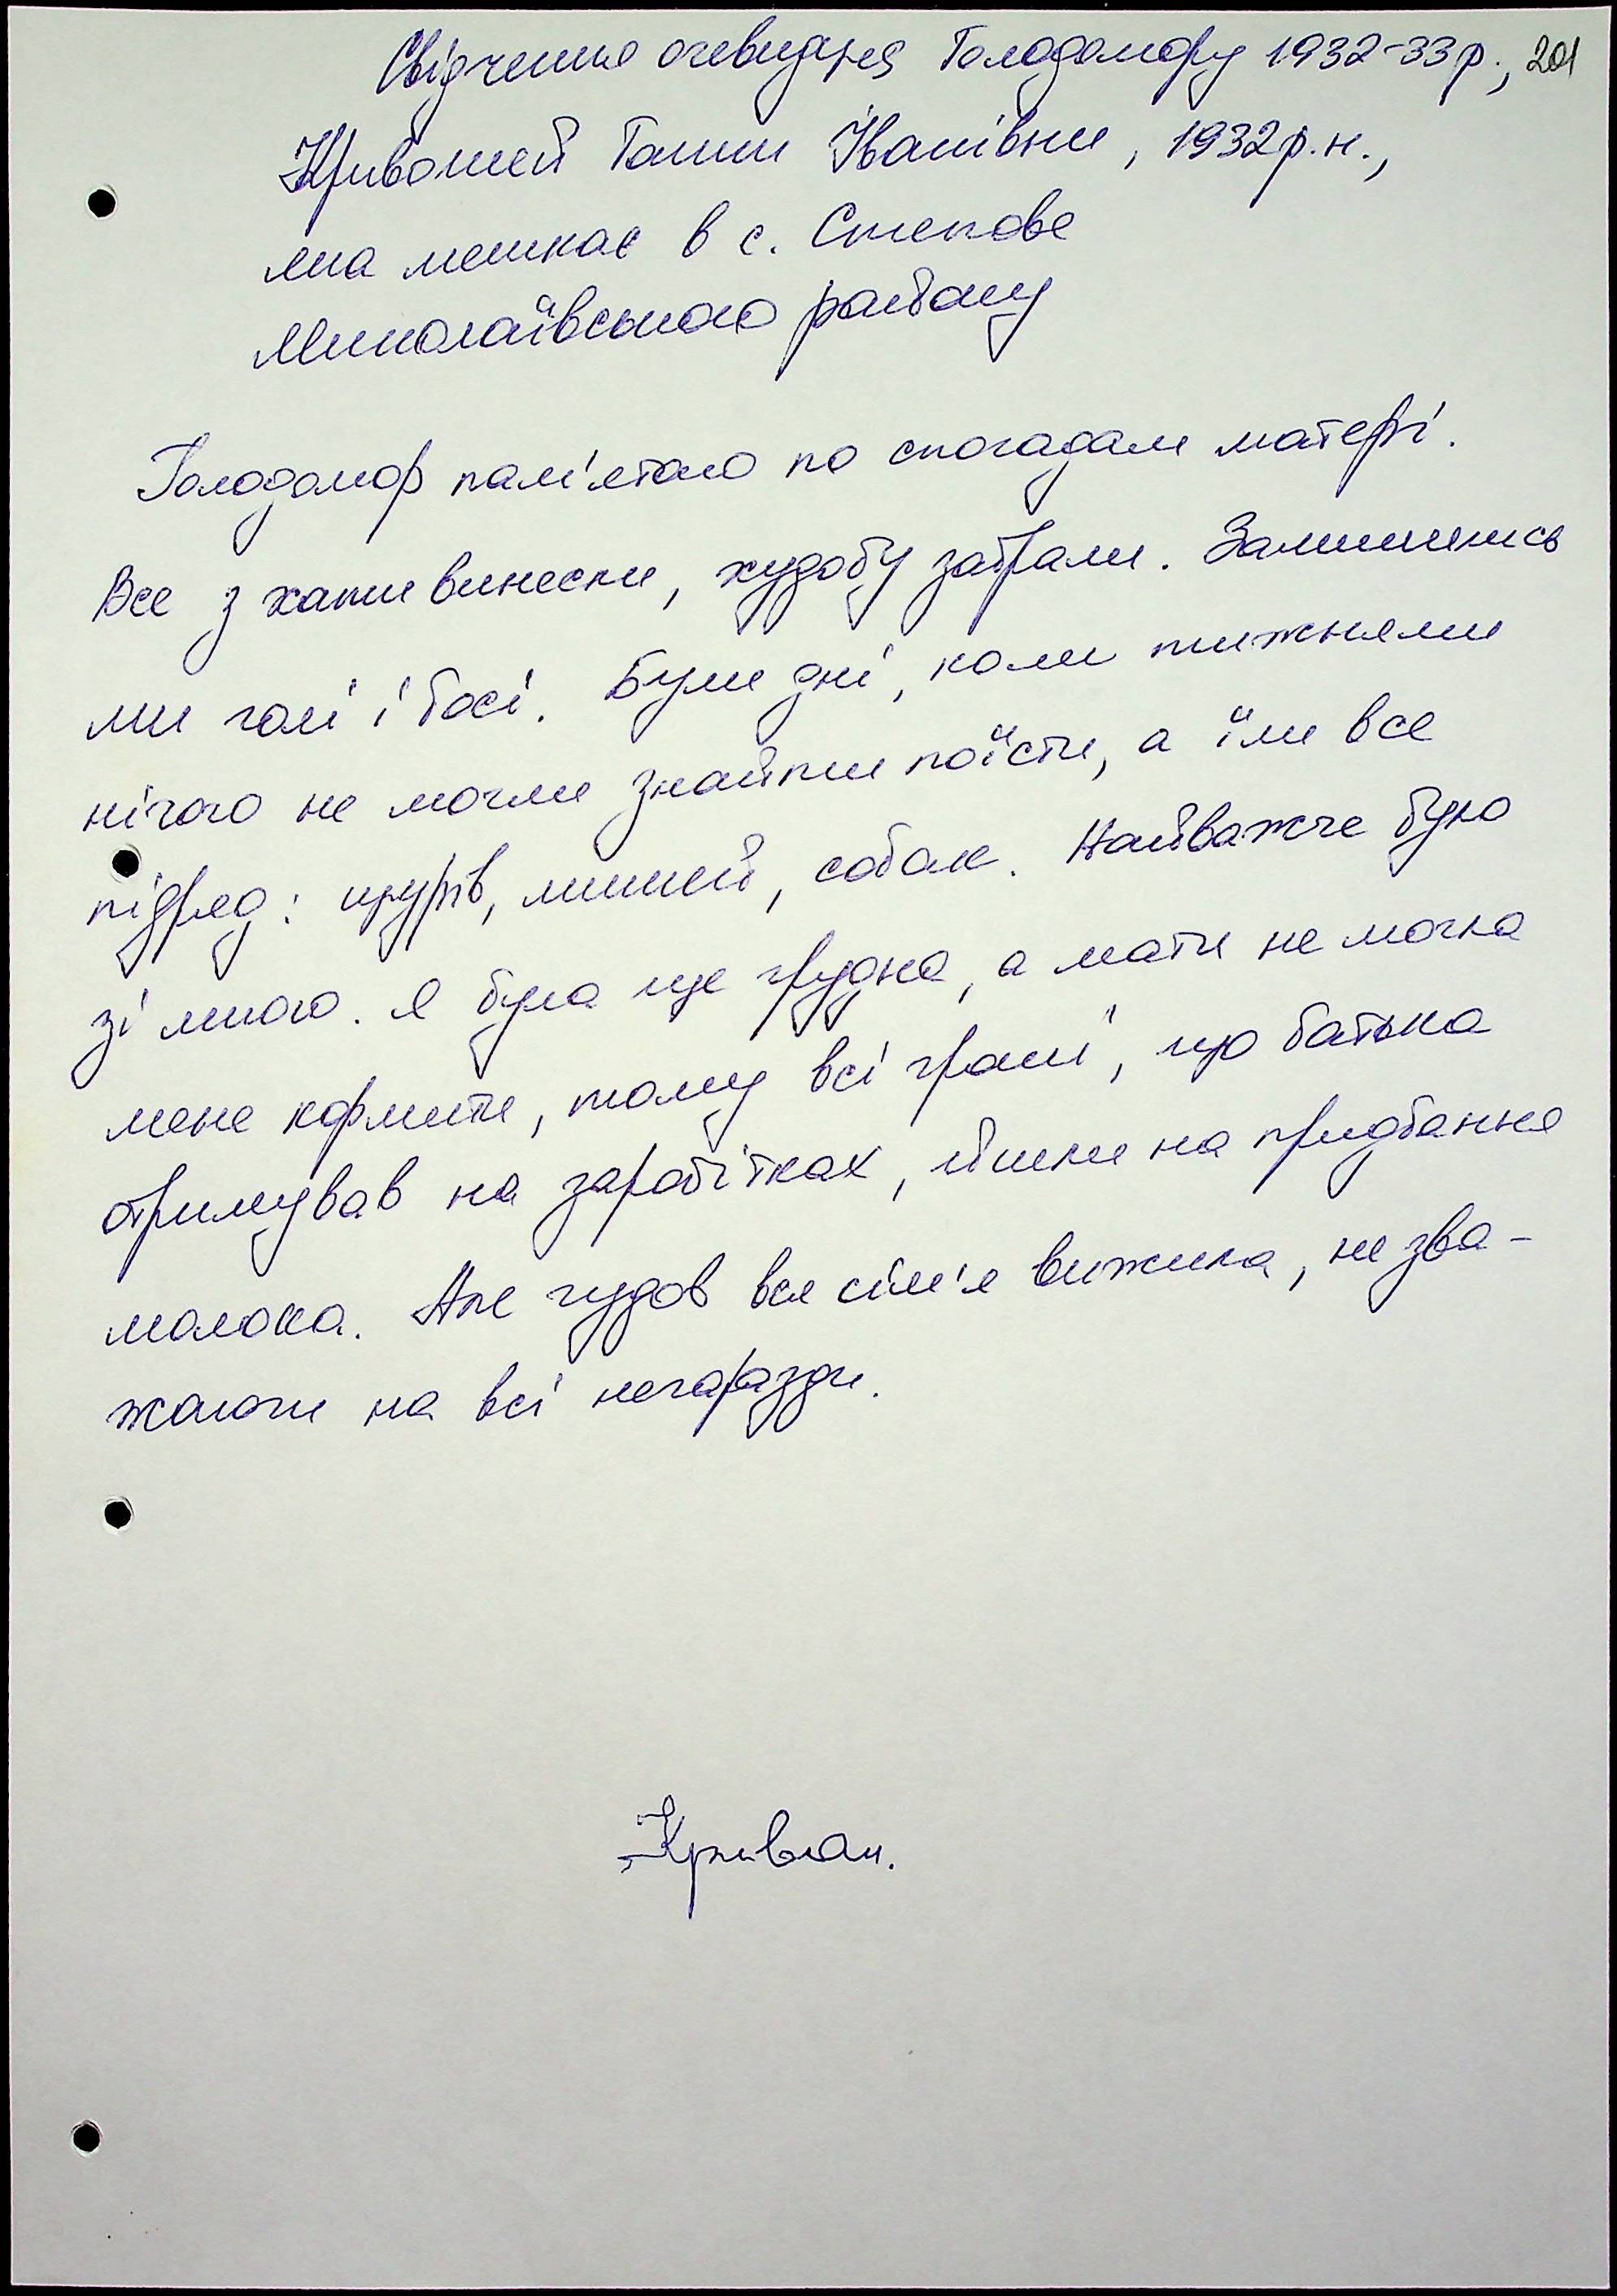 Свідчення очевидця Голодомору 1932-33 р., 201
Кривошей Ганни Іванівни, 1932 р.н.,
яка мешкає в с. Степове
Миколаївського району
Голодомор пам'ятаю по спогадам матері.
Все з хати винесли, худобу забрали. Залишились
ми голі і босі. Були дні, коли тижнями
нічого не могли знайти поїсти, а їли все
підряд: щурів, мишей, собак. Найважче було
зі мною. Я була ще грудна, а мати не могла
мене кормити, тому всі гроші, що батько
отримував на заробітках, йшли на придбання
молока. Але чудов вся сім'я вижила, не зва-
жаючи на всі негаразди.